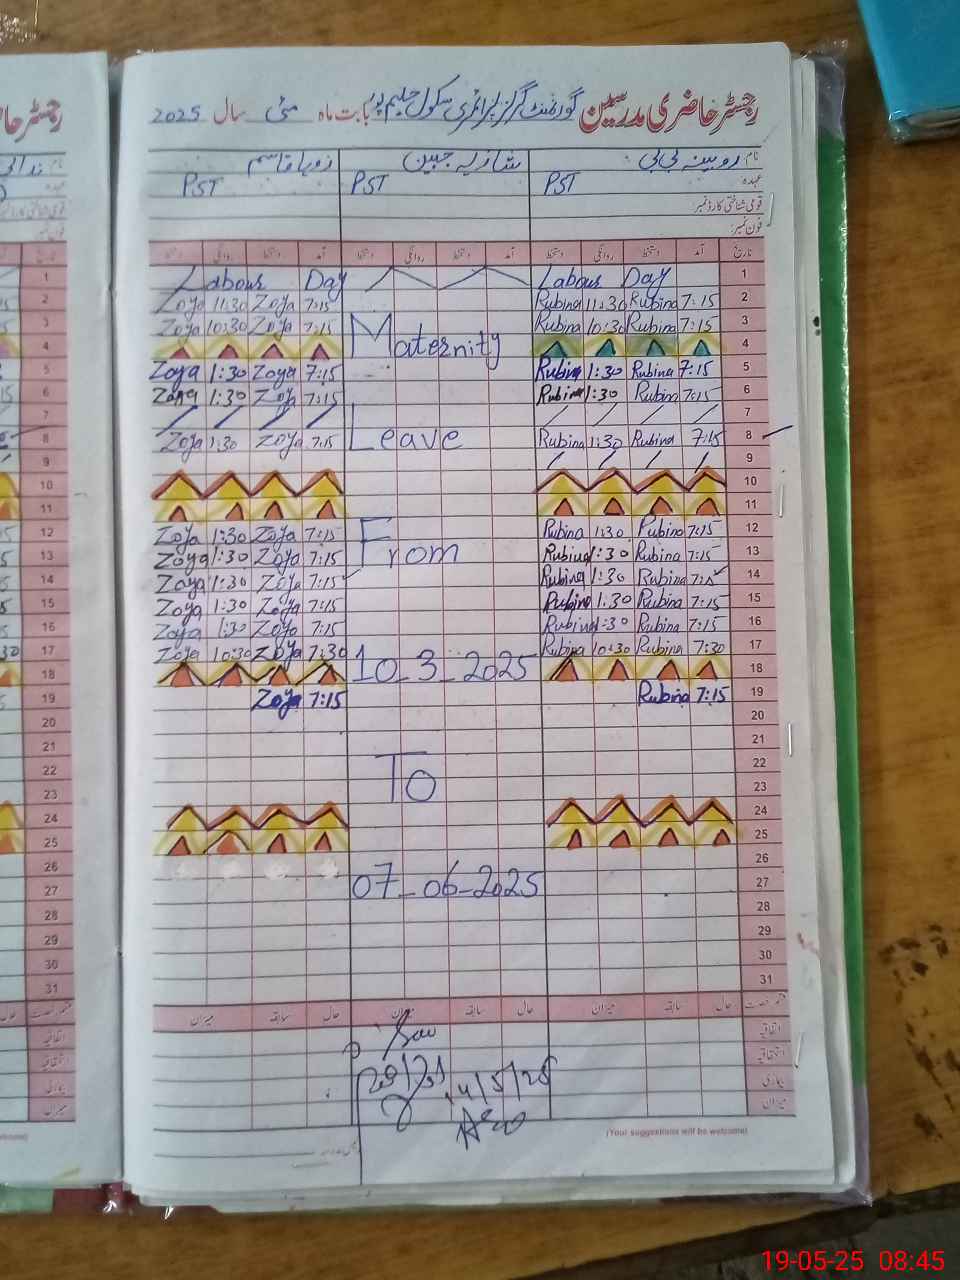 رجسٹر حاضری مدرسین گورنمنٹ گرلز پرائمری سکول حلیم پور بابت ماہ مئی سال 2025
نام روبینہ بی بی شازیہ جبین زویا قاسم
عہدہ PST PST PST
قومی شناختی کارڈ نمبر:
فون نمبر:
تاریخ آمد دستخط روانگی دستخط آمد دستخط روانگی دستخط آمد دستخط روانگی دستخط
Labour Day Labour Day 1
Zoya 11:30 Zoya 7:15 Rubina 11:30 Rubina 7:15 2
Zoya 10:30 Zoya 7:15 Rubina 10:30 Rubina 7:15 3
Maternity 4
Zoya 1:30 Zoya 7:15 Rubina 1:30 Rubina 7:15 5
Zoya 1:30 Zoya 7:15 Rubina 1:30 Rubina 7:15 6
7
Zoya 1:30 Zoya 7:15 Leave Rubina 1:30 Rubina 7:15 8
9
10
11
Zoya 1:30 Zoya 7:15 Rubina 1:30 Rubina 7:15 12
Zoya 1:30 Zoya 7:15 From Rubina 1:30 Rubina 7:15 13
Zoya 1:30 Zoya 7:15 Rubina 1:30 Rubina 7:15 14
Zoya 1:30 Zoya 7:15 Rubina 1:30 Rubina 7:15 15
Zoya 1:30 Zoya 7:15 Rubina 1:30 Rubina 7:15 16
Zoya 10:30 Zoya 7:30 Rubina 10:30 Rubina 7:30 17
10_3_2025 18
Zoya 7:15 Rubina 7:15 19
20
21
22
To 23
24
25
26
07_06_2025 27
28
29
30
31
قسم رخصت حال سابقہ میزان حال سابقہ میزان حال سابقہ میزان
اتفاقیہ
استحقاقیہ
بیماری
14/5/25
میزان
(Your suggestions will be welcome)
19-05-25 08:45